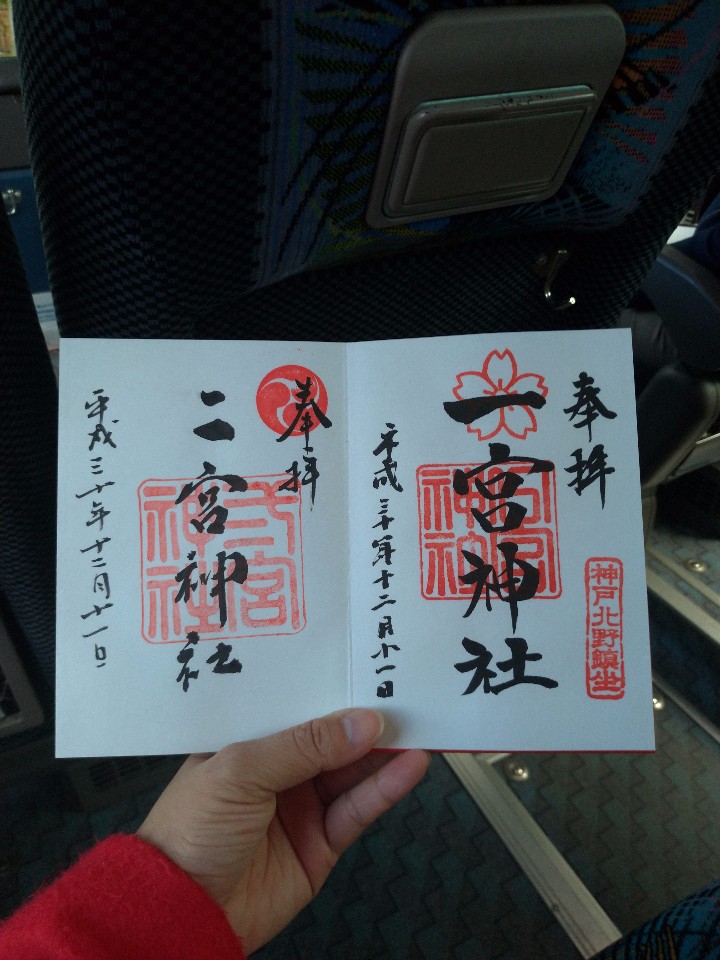 奉拝
神戸北野鎮坐
一宮神社
神社
平成三十年十二月廿一日
奉拝
二宮神社
弍宮
神社
平成三十年十二月廿一日